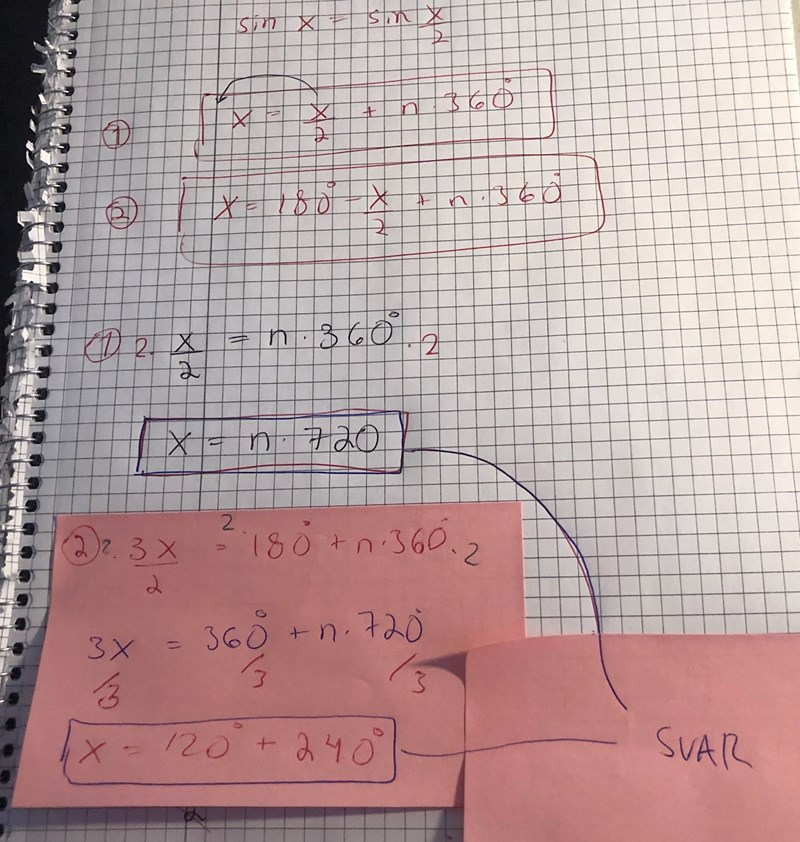 sin x = sin x/2
① x = x/2 + n·360°
② x = 180° - x/2 + n·360°
① 2· x/2 = n·360°·2
x = n·720
② 2· 3x/2 = 2·180° + n·360·2
3x = 360° + n·720°
/3 /3 /3
x = 120° + 240°
SVAR